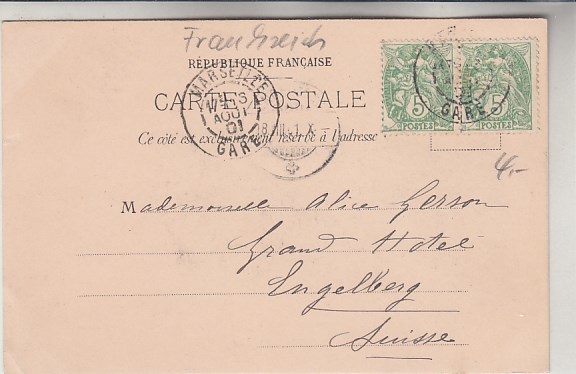 Frankreich
RÉPUBLIQUE FRANÇAISE
CARTE POSTALE
Ce côté est exclusivement réservé à l'adresse
MARSEILLE
1 AOUT
01
GARE
5 5
POSTES POSTES
GARE
4.-
Mademoiselle Alice Gerson
Grand Hotel
Engelberg
Suisse